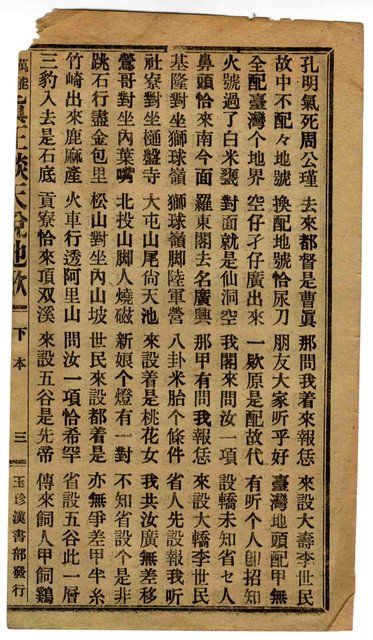 孔明氣死周公瑾 去來都督是曹眞 那問我着來報恁 來設大壽李世民
故中不配々地號 換配地號恰尿刀 朋友大家听乎好 臺灣地頭配甲無
全配臺灣个地界 空仔孔仔廣出來 一欵原是配故代 有听个人卽招知
火號過了白米甕 對面就是仙洞空 我閣來問汝一項 設轎未知省セ人
鼻頭恰來南今面 羅東閣去名廣興 那甲有問我報恁 來設大轎李世民
基隆對坐獅球嶺 獅球嶺脚陸軍營 八卦米胎个條件 省人先設報我听
社寮對坐樋盤寺 大屯山尾尙天池 來設着是桃花女 我共汝廣無差移
鶯哥對坐內葉嘴 北投山脚人燒磁 新娘个燈有一對 不知省設个是非
跳石行盡金包里 松山對坐內山坡 世民來設都着是 亦無爭差甲半糸
竹崎出來鹿麻產 火車行透阿里山 問汝一項恰希罕 省設五谷此一層
三豹入去是石底 貢寮恰來頂双溪 來設五谷是先帝 傳來飼人甲飼鷄
萬能 眞正談天說地歌 下本 三 玉珍漢書部發行